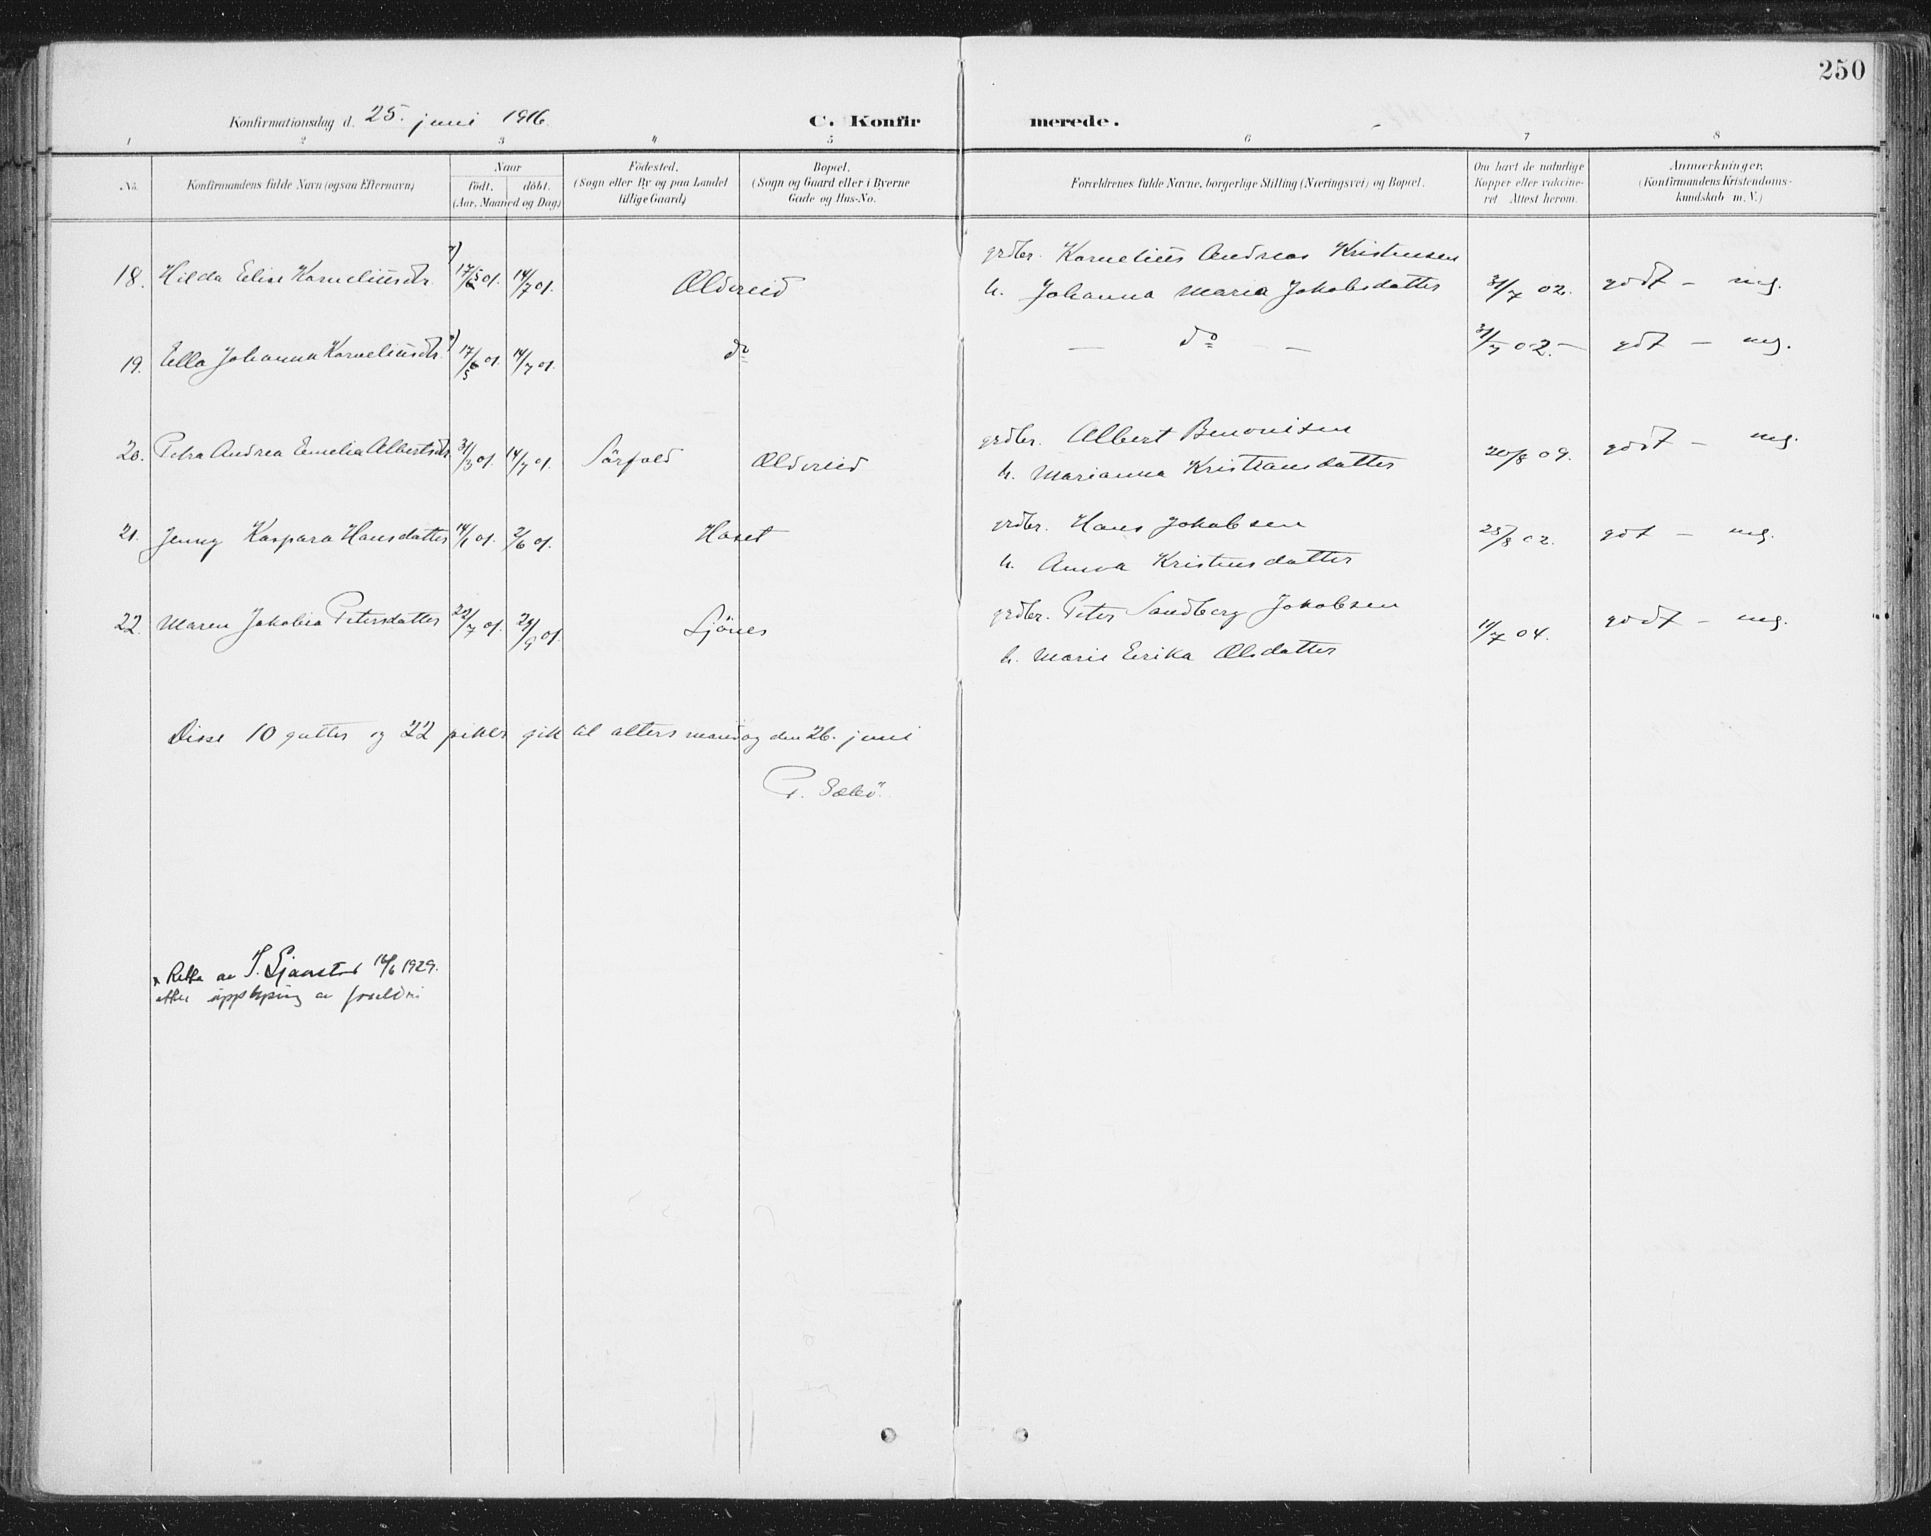 250
Konfirmationsdag d. 25. juni 1916. C. Konfirmerede.
1 2 3 4 5 6 7 8
No.
Konfirmandens fulde Navn (ogsaa Efternavn)
Naar
født. döbt.
(Aar, Maaned og Dag)
Födested.
(Sogn eller By og paa Landet
tillige Gaard)
Bopæl.
(Sogn og Gaard eller i Byerne
Gade og Hus-No.
Forældrenes fulde Navne, borgerlige Stilling (Næringsvei) og Bopæl.
Om havt de naturlige
Kopper eller vakcine-
ret Attest herom.
Anmærkninger.
(Konfirmandens Kristendoms-
kundskab m. V.)
grdbr. Kornelius Andreas Kristensen
18. Hilda Elise Korneliusdtr. x) 17/5 01. 14/7 01. Oldereid h. Johanna Maria Jakobsdatter 31/7 02. godt – mg.
19. Ella Johanna Korneliusdtr. x) 17/5 01. 14/7 01. do — do — 31/7 02. – gdt – mg.
grdbr. Albert Benonisen
20. Petra Andrea Emelia Albertsdtr. 31/3 01. 14/7 01. Sörfold Oldereid h. Marianna Kristiansdatter 20/8 09. godt – mg.
21. Jenny Kaspara Hansdatter 14/1 01. 2/6 01. Haset grdbr. Hans Jakobsen 28/8 02. got – mg.
h. Anna Kristensdatter
22. Maren Jakobia Petersdatter 20/7 01. 29/9 01. Sjönes grdbr. Peter Sandberg Jakobsen 11/7 04. godt – mg.
h. Marie Erika Olsdatter
Disse 10 gutter og 22 piker gik til alters mandag den 26. juni
P. Sæbö.
x Retta av 16/6 1929.
etter uppliysing av foreldri